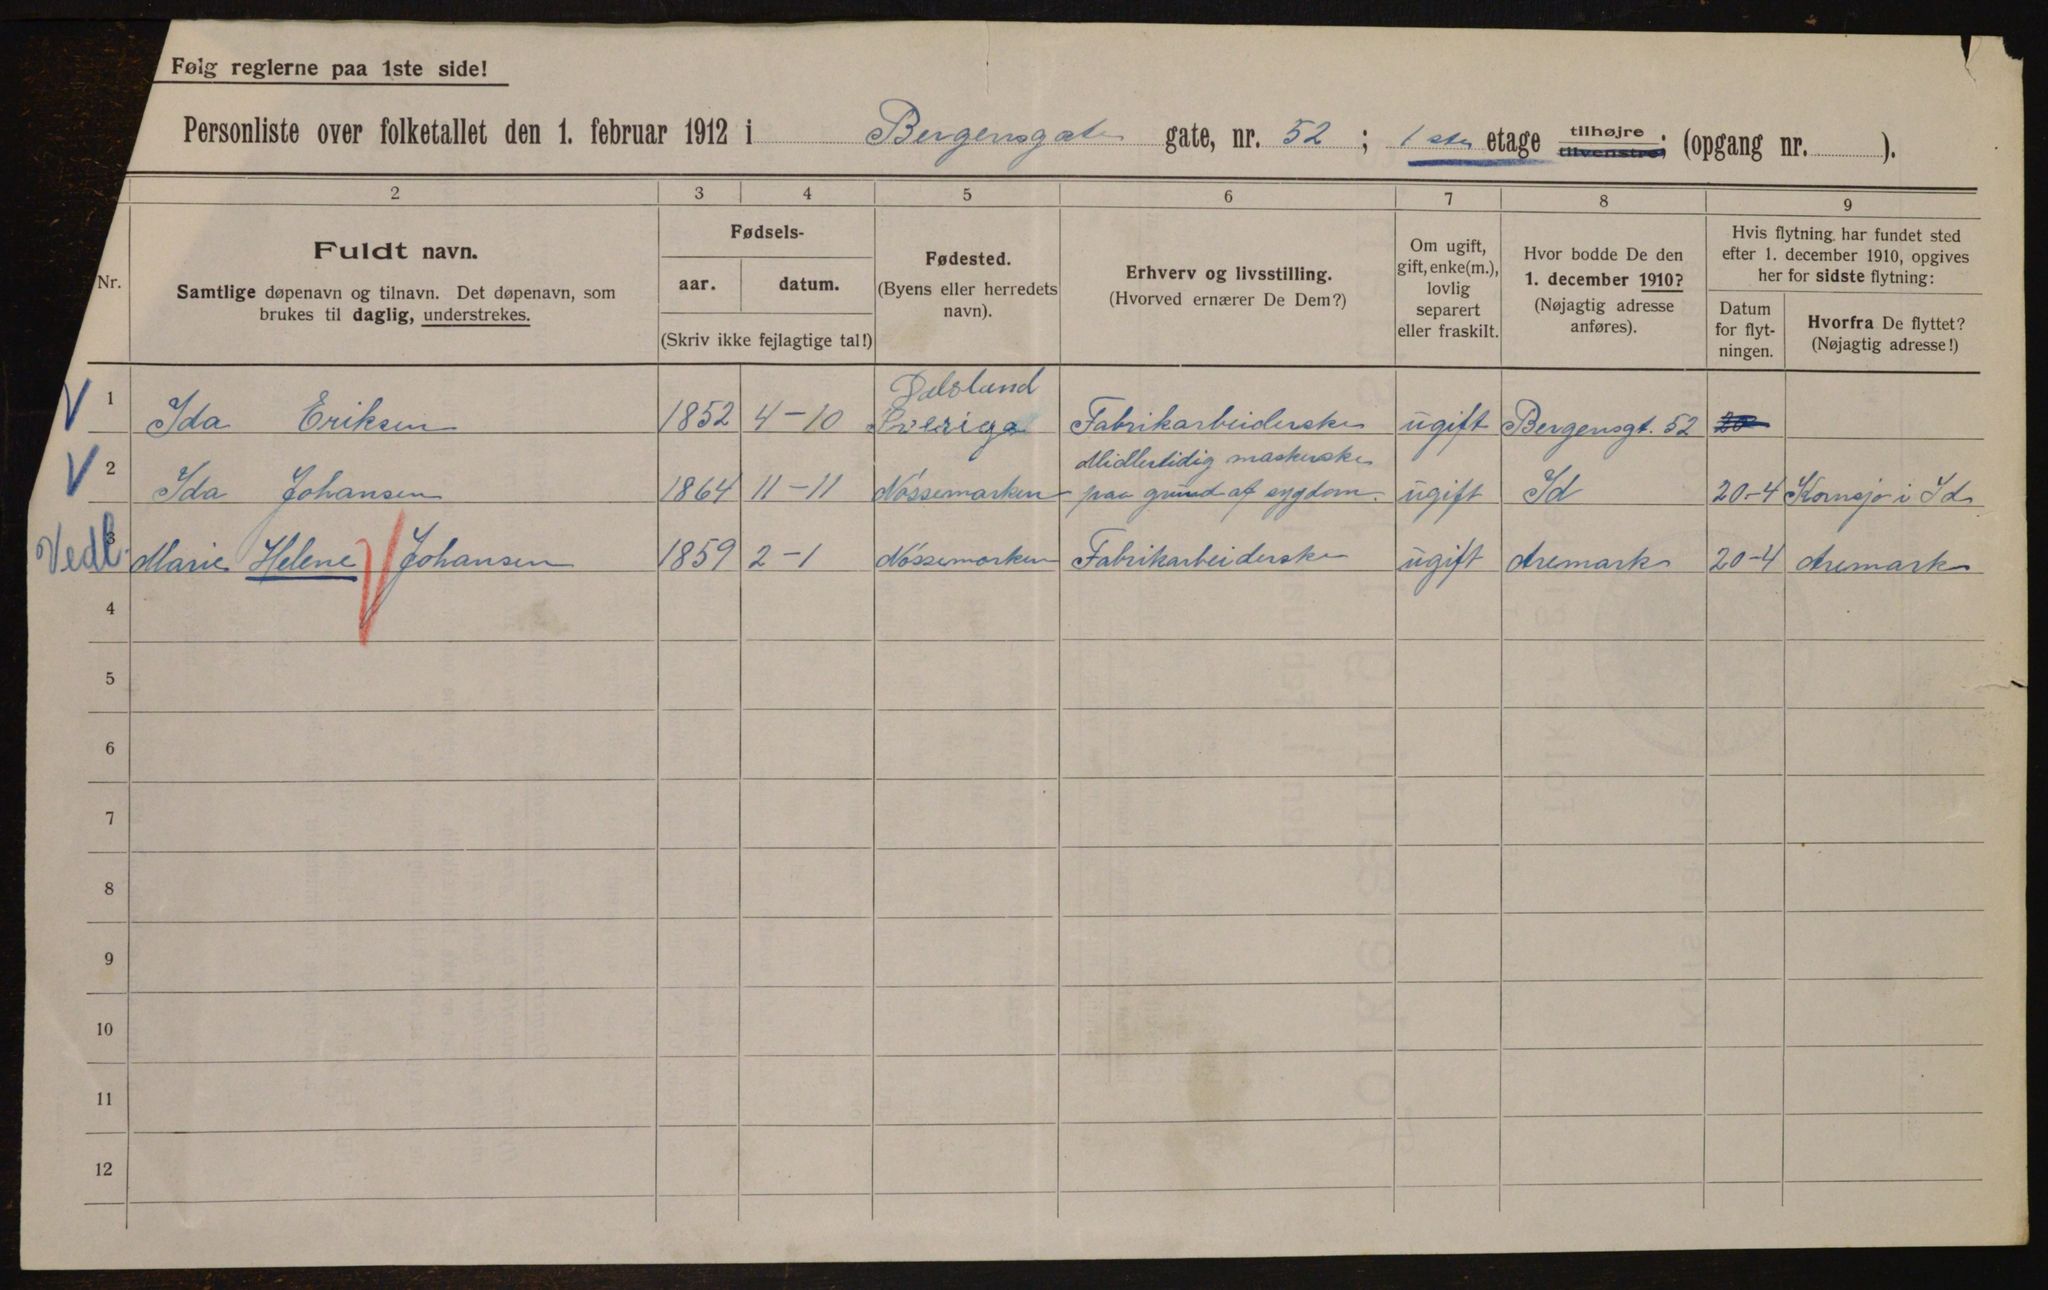 Følg reglerne paa 1ste side!
Personliste over folketallet den 1. februar 1912 i Bergensgate gate, nr. 52 ; 1ste etage tilhøjre tilvenstre; (opgang nr. ).
2 3 4 5 6 7 8 9
Nr.
Fuldt navn.
Samtlige døpenavn og tilnavn. Det døpenavn, som
brukes til daglig, understrekes.
Fødsels-
aar. datum.
(Skriv ikke fejlagtige tal!)
Fødested.
(Byens eller herredets
navn).
Erhverv og livsstilling.
(Hvorved ernærer De Dem?)
Om ugift,
gift, enke(m.),
lovlig
separert
eller fraskilt.
Hvor bodde De den
1. december 1910?
(Nøjagtig adresse
anføres).
Hvis flytning har fundet sted
efter 1. december 1910, opgives
her for sidste flytning:
Datum
for flyt-
ningen.
Hvorfra De flyttet?
(Nøjagtig adresse!)
Dalsland
V 1 Ida Eriksen 1852 4-10 Sveriga Fabrikarbeiderske ugift Bergensgt. 52 20
Midlertidig maskerske
V 2 Ida Johansen 1864 11-11 Nössemarken paa grund af sygdom. ugift Id 20-4 Kornsjø i Id
Vedl. 3 Marie Helene V Johansen 1859 2-1 Nössemarken Fabrikarbeiderske ugift Aremark 20-4 Aremark
4
5
6
7
8
9
10
11
12